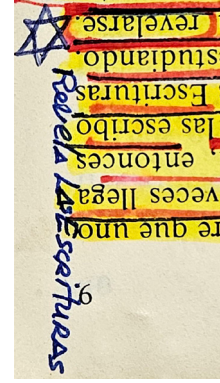 re que uno
veces llega
entonces
las escribo
Escrituras
studiando
revelarse.
Revela LAS EscriTURAS